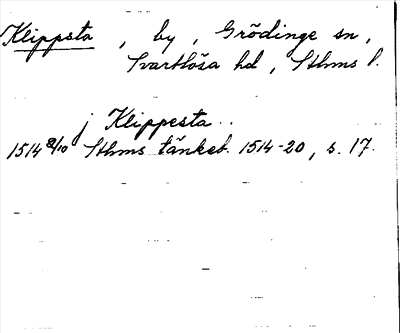 Klippsta, by, Grödinge sn,
Svartlösa hd, Sthms l.
j Klippesta..
1514 9/10 Sthms tänkeb. 1514-20, s. 17.